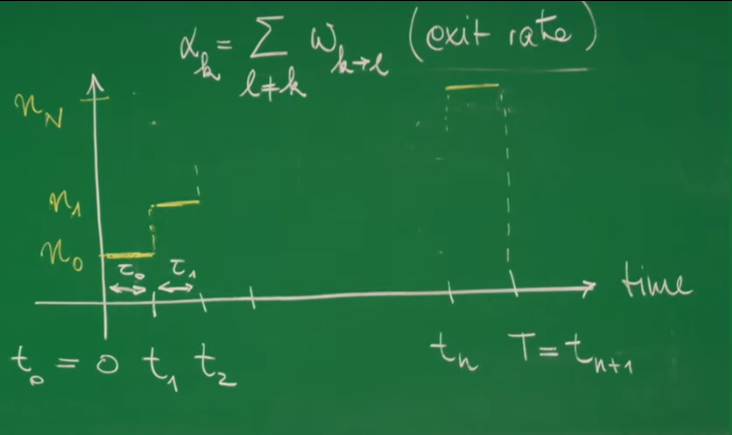 α_k = Σ_{l≠k} ω_{k→l} (exit rate)
n_N
n_1
n_0
τ_0 τ_1
time
t_0 = 0 t_1 t_2 t_n T = t_{n+1}